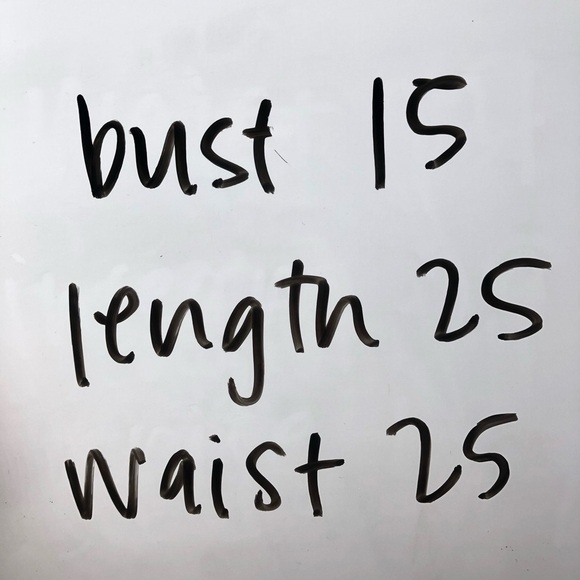 bust 15
length 25
waist 25